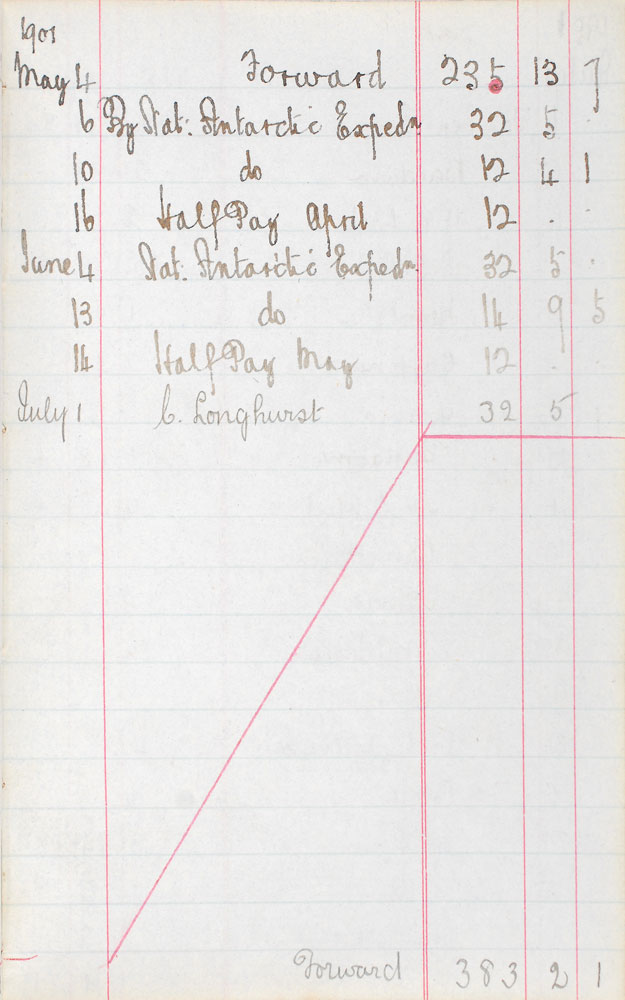 1901
May 4 Forward 235 13 7
6 By Nat: Antarctic Expedn 32 5 .
10 do 12 4 1
16 Half Pay April 12 . .
June 4 Nat: Antarctic Expedn. 32 5 .
13 do 14 9 5
14 Half Pay May 12 . .
July 1 C. Longhurst 32 5
Forward 383 2 1